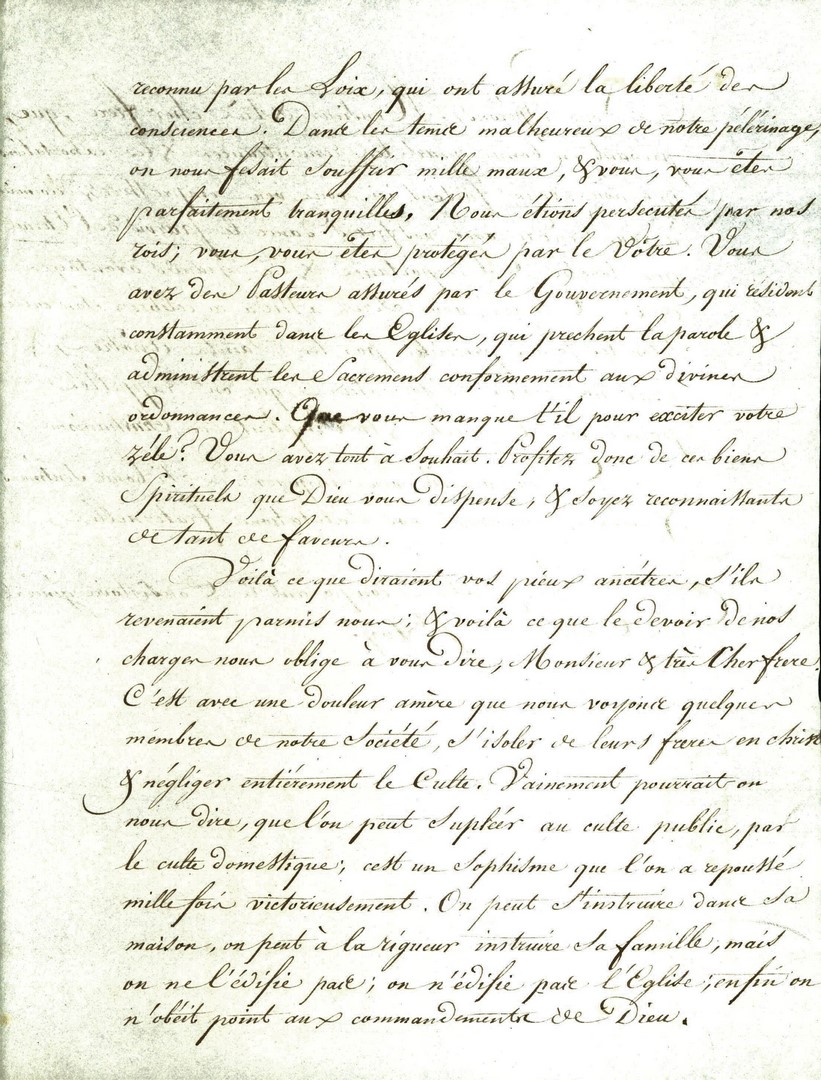 reconnu par les Loix, qui ont assuré la liberté des
consciences. Dans les tems malheureux de notre pélérinage,
on nous fesait souffrir mille maux, & vous, vous êtes
parfaitement tranquilles. Nous étions persecutés par nos
rois; vous, vous êtes protégés par le Vôtre. Vous
avez des Pasteurs assurés par le Gouvernement, qui resident
constamment dans les Eglises, qui prechent la parole &
administrent les Sacremens conformement aux divines
ordonnances. Que vous manque t'il pour exciter votre
zéle? Vous avez tout à souhait. Profitez donc de ces biens
Spirituels que Dieu vous dispense, & soyez reconnaissants
de tant de faveurs.
Voilà ce que diraient vos pieux ancétres, s'ils
revenaient parmis nous; & voilà ce que le devoir de nos
charges nous oblige à vous dire, Monsieur & très Cher frere.
C'est avec une douleur amère que nous voyons quelques
membres de notre Société, s'isoler de leurs freres en christ
& négliger entiérement le Culte. Vainement pourrait on
nous dire, que l'on peut supléer au culte public, par
le culte domestique; c'est un sophisme que l'on a repoussé
mille fois victorieusement. On peut s'instruire dans sa
maison, on peut à la rigueur instruire sa famille, mais
on ne l'édifie pas; on n'édifie pas l'Eglise; enfin on
n'obéit point aux commandements de Dieu.